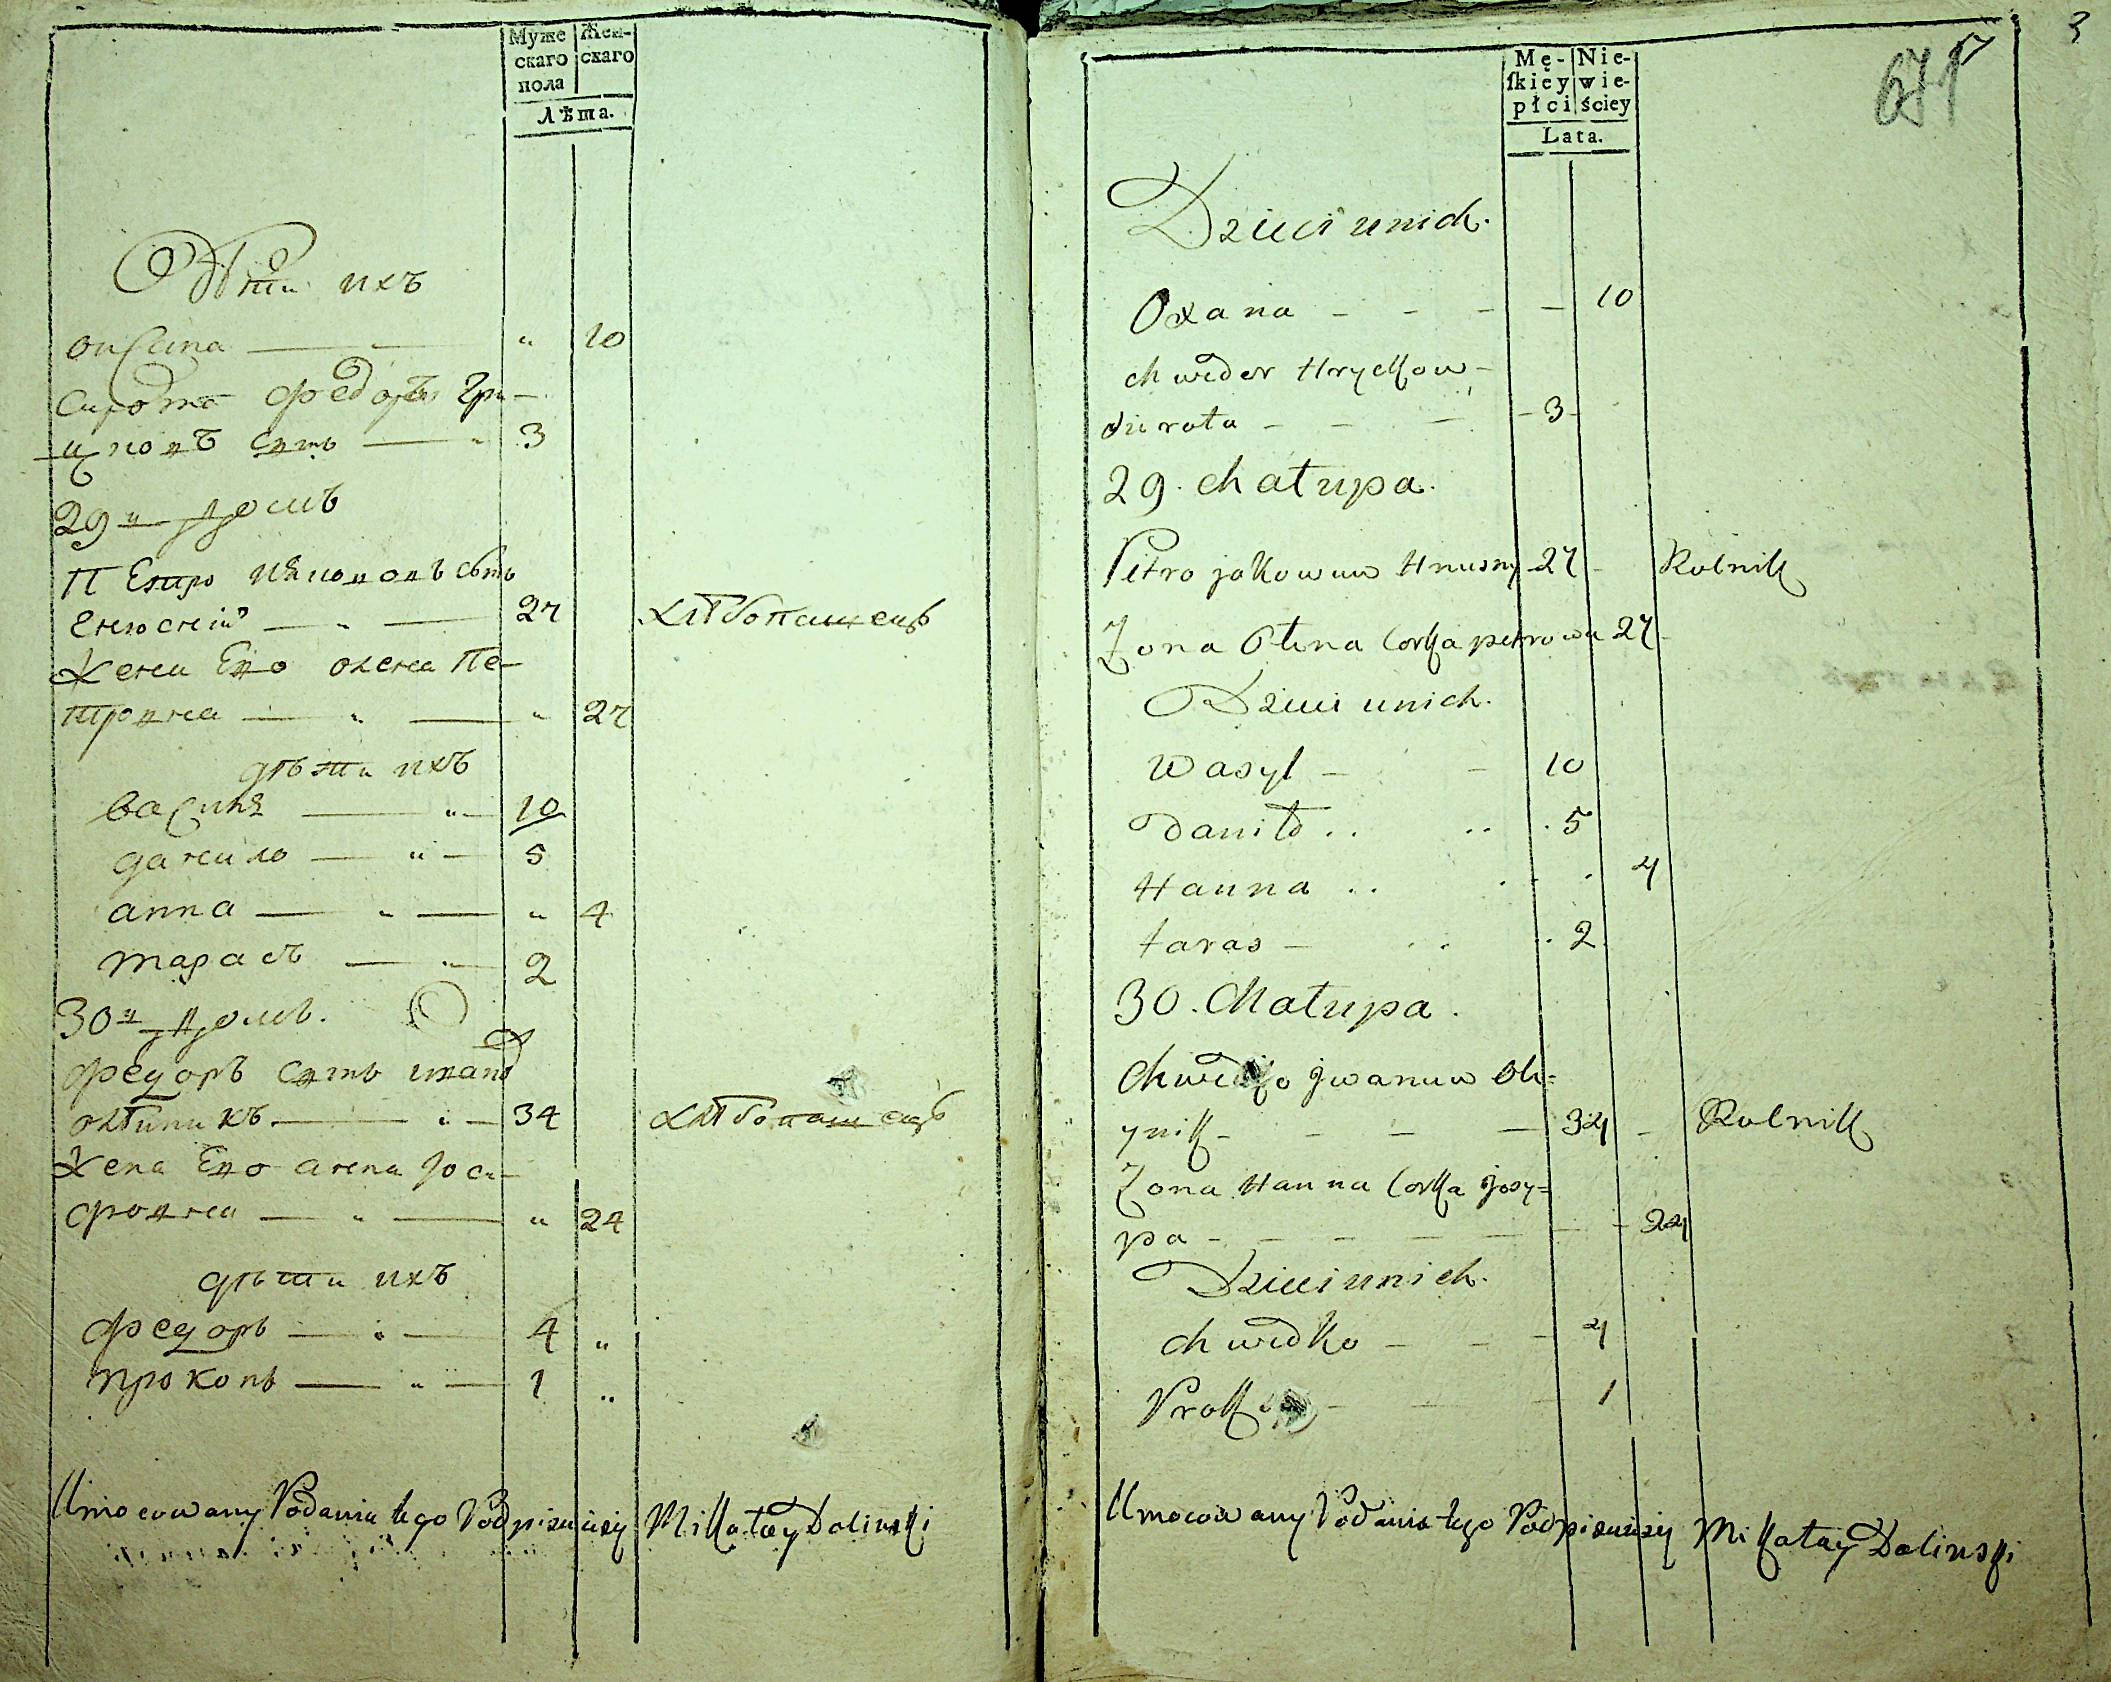 Муже
скаго
пола
Жен-
скаго
Лѣта.
Дѣти ихъ
10
Сирота Федоръ Гри-
цковъ сынъ 3
29й домъ
Петро Яковомъ сынъ
27 хлѣбопашецъ
Жена Его олена Пе-
тровна " 27
дѣти ихъ
Василь 10
данило 5
анна " 4
тарасъ 2
30й домъ.
Федоръ сынъ иван
олѣйникъ 34 хлѣбопашецъ
Жена Его анна Іоси-
фовна " 24
дѣти ихъ
Федоръ 4 "
прокопъ 1 "
Umocowany Podania tego Podpisuie się Mikołay Dolinski
3
671
Mę-
skiey
płci
Nie-
wie-
ściey
Lata.
Dzieci u nich.
Oxana - - - - 10
Chweder Hryckow -
sirota - - - 3 -
29. Chałupa.
Petro Jakowuw Hnusny 27 - Rolnik
Zona Ołena Corka petrowa 27 -
Dzieci u nich.
Wasyl - - 10
Daniło .. .. . 5
Hanna .. 4
taras - .. 2
30. Chałupa.
Chwedko Jwanuw Oli=
ynik - - - - 34 - Rolnik
Zona Hanna Corka Josy=
pa - - - - - - 24
Dzieci u nich.
Chwedko - - - 4
Prok - - - 1
Umocowany Podania tego Podpisuie się Mikołay Dolinski